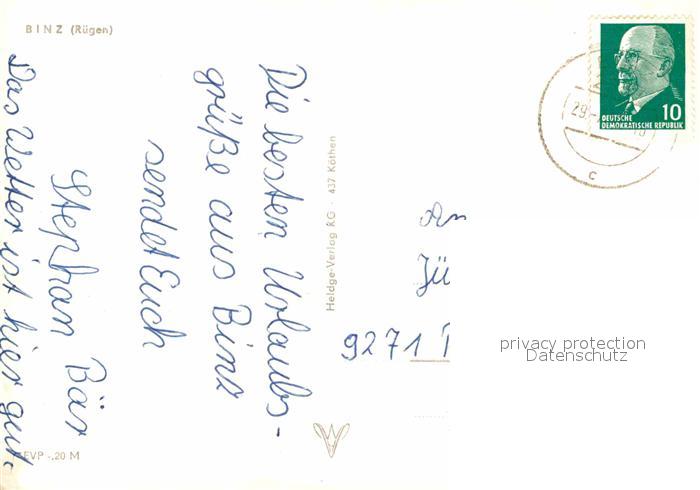 BINZ (Rügen)
Die besten Urlaubs-
grüße aus Binz
sendet Euch
Stephan Bär
Das Wetter ist hier gut.
EVP -,20 M
Heldge-Verlag KG · 437 Köthen
An
Jü
9271
10
DEUTSCHE
DEMOKRATISCHE REPUBLIK
29.
c
privacy protection
Datenschutz